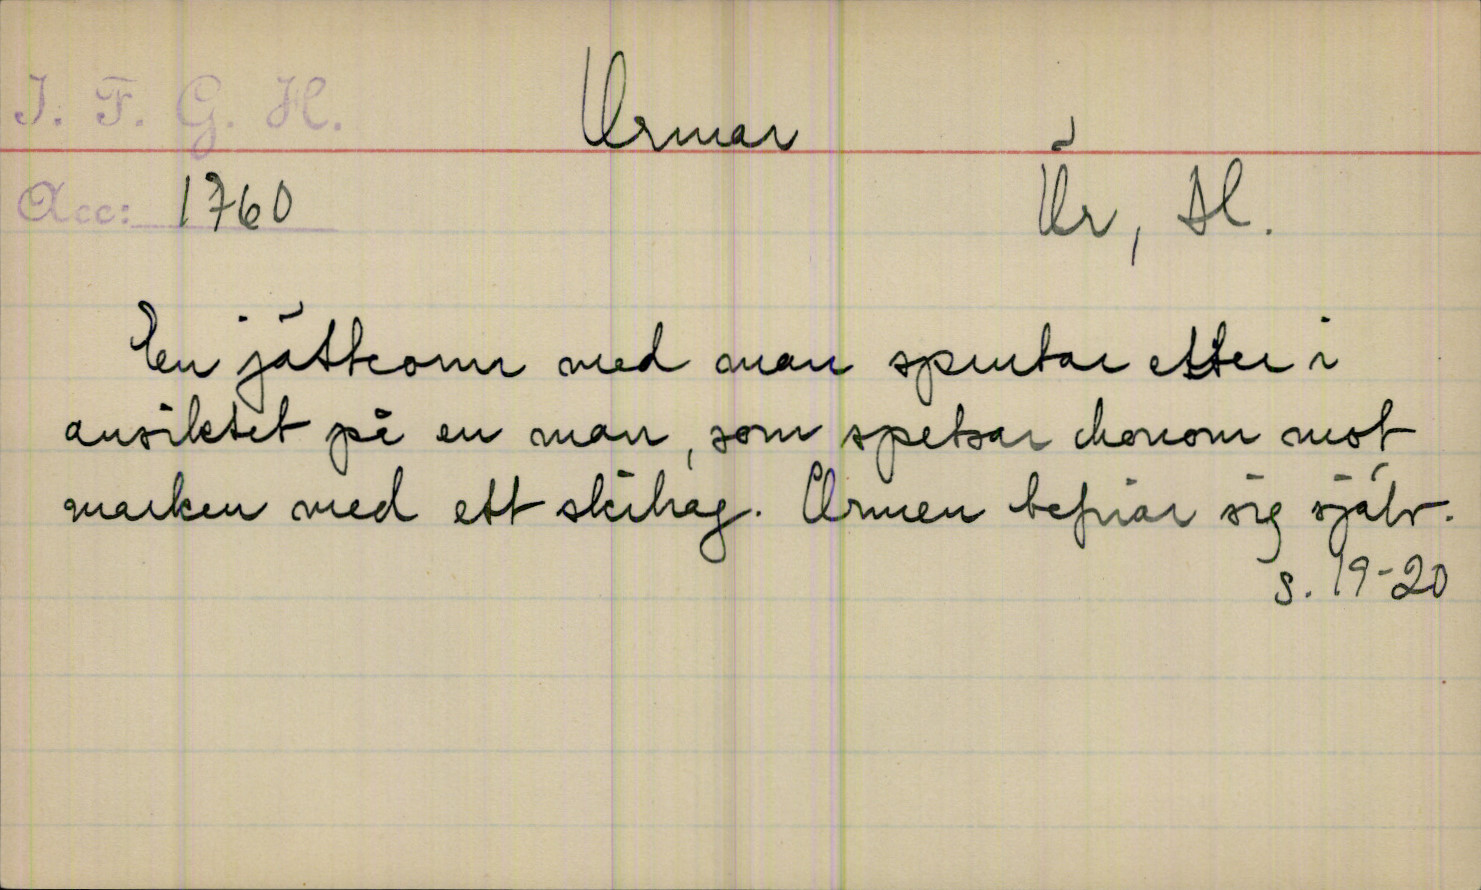 I. F. G. H.
Ormar
Acc: 1760
Ör, Dl.
En jätteorm med man sprutar etter i
ansiktet på en man, som spetsar honom mot
marken med ett skihag. Ormen befriar sig själv.
s. 19-20